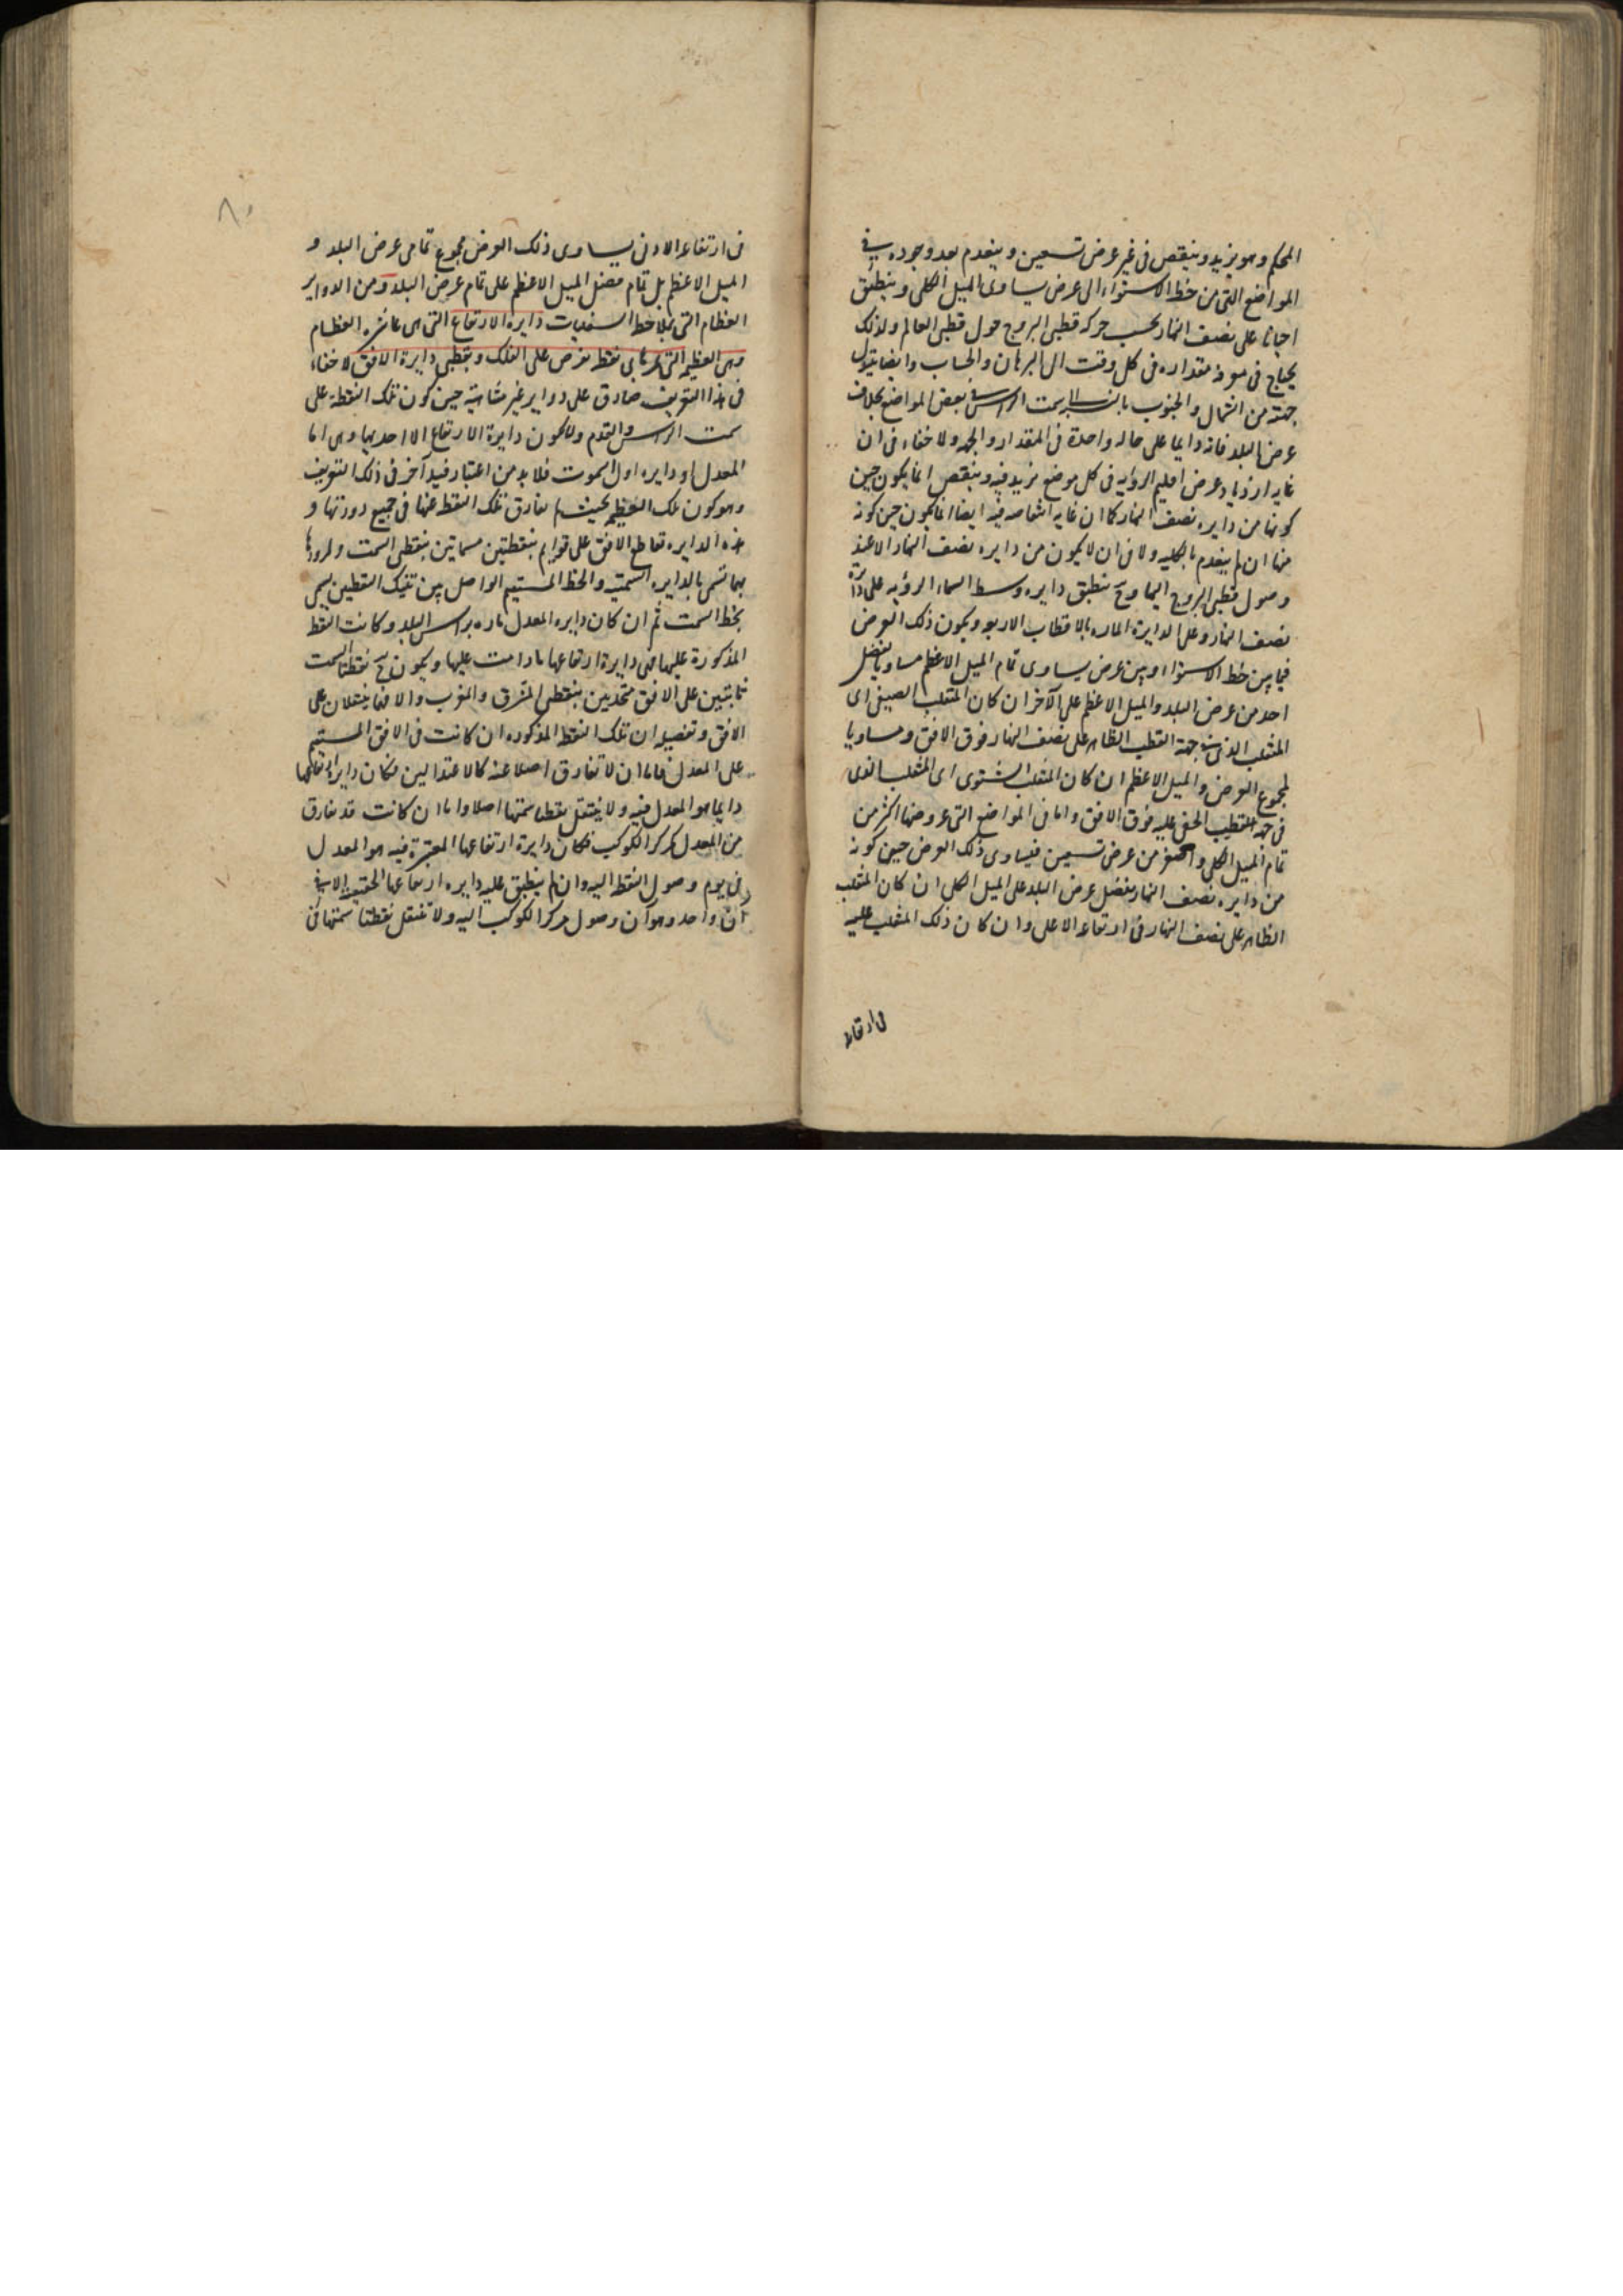 المحكم وهو يزيد وينقص فى غير عرض تسعين وينعدم بعد وجوده فى
المواضع التى من خط الاستواء الى عرض يساوى الميل الكلى وينطبق
احيانا على نصف النهار بحسب حركه قطبى البروج حول قطبى العالم ولذلك
يحتاج فى معرفة مقداره فى كل وقت الى البرهان والحساب وايضا يتبدل
جهته من الشمال والجنوب بالنسبة الى سمت الراس فى بعض المواضع بخلاف
عرض البلد فانه دايما على حاله واحدة فى المقدار والجهه ولا خفاء فى ان
غايه ازدياد عرض اقليم الرؤيه فى كل موضع يزيد فيه وينقص انما يكون حين
كونها من دايره نصف النهار كما ان غايه انتقاصه فيه ايضا انما يكون حين كونه
منها ان لم ينعدم بالكليه ولا فى ان لا يكون من دايره نصف النهار الا عند
وصول قطبى البروج اليها وح ينطبق دايره وسط السماء الرؤيه على دايرة
نصف النهار وعلى الدايرة الماره بالاقطاب الاربعه ويكون ذلك العرض
فيما بين خط الاستواء وبين عرض يساوى تمام الميل الاعظم مساويا لفضل
احد من عرض البلد والميل الاعظم على الآخر ان كان المنقلب الصيفى اى
المنقلب الذى فى جهة القطب الظاهر على نصف النهار فوق الافق ومساويا
لمجموع العرض والميل الاعظم ان كان المنقلب الشتوى اى المنقلب الذى
فى جهه القطب الخفى عليه فوق الافق واما فى المواضع التى عروضها اكثر من
تمام الميل الكلى واصغر من عرض تسعين فيساوى ذلك العرض حين كونه
من دايره نصف النهار لفضل عرض البلد على الميل الكلى ان كان المنقلب
الظاهر على نصف النهار فى ارتفاعه الاعلى وان كان ذلك المنقلب عليه
فى ارتفاعه
فى ارتفاعه الادنى يساوى ذلك العرض مجموع تمامى عرض البلد و
الميل الاعظم بل تمام فضل الميل الاعظم على تمام عرض البلد ومن الدواير
العظام التى بملاحظه السفليات دايرة الارتفاع التى هى عاشره العظام
وهى العظيمه التى تمر باى نقطه تفرض على الفلك وبقطبى دايرة الافق لا خفاء
فى هذا التعريف صادق على دواير غير متناهية حين كون تلك النقطة على
سمت الراس والقدم ولا يكون دايرة الارتفاع الا احديها وهى اما
المعدل او دايره اول السموت فلا بد من اعتبار قيد آخر فى ذلك التعريف
وهو كون تلك العظيمه بحيث لم تفارق تلك النقطه عنها فى جميع دورتها و
هذه الدايره تقاطع الافق على قوايم بنقطتين مسماتين بنقطتى السمت ولمرورها
بهما تسمى بالدايره السمتيه والخط المستقيم الواصل بين تينك النقطتين يسمى
بخط السمت ثم ان كان دايره المعدل ماره براس البلد وكانت النقطه
المذكورة عليها فهى دايرة ارتفاعها ما دامت عليها ويكون ح نقطتا السمت
ثابتتين على الافق متحدتين بنقطتى المشرق والمغرب والا فهما ينتقلان على
الافق وتفصيله ان تلك النقطه المذكوره ان كانت فى الافق المستقيم
على المعدل فاما ان لا تفارق اصلا عنه كالاعتدالين فكان دايره ارتفاعها
دايما هو المعدل فيه ولا ينتقل نقطتا سمتها اصلا واما ان كانت قد تفارق
من المعدل كمركز الكوكب فكان دايرة ارتفاعها المعتبرة فيه هو المعدل
فى يوم وصول النقطه اليه وان لم ينطبق عليه دايره ارتفاعها الحقيقيه الا فى
آن واحد وهو آن وصول مركز الكوكب اليه ولا تنتقل نقطتا سمتها فى